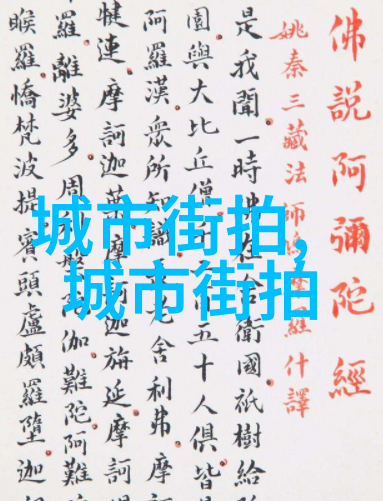 佛說阿彌陀經
姚秦三藏法師鳩羅什譯
是我聞一時佛在舍衛國祇樹給
園與大比丘僧五十人俱皆
阿羅漢眾所知識長老舍利弗摩訶
犍連摩訶迦葉摩訶迦旃延摩訶
羅離婆多周槃伽難陀阿難
睺羅憍梵波提賓頭盧頗羅墮迦
城市街拍,
城市街拍